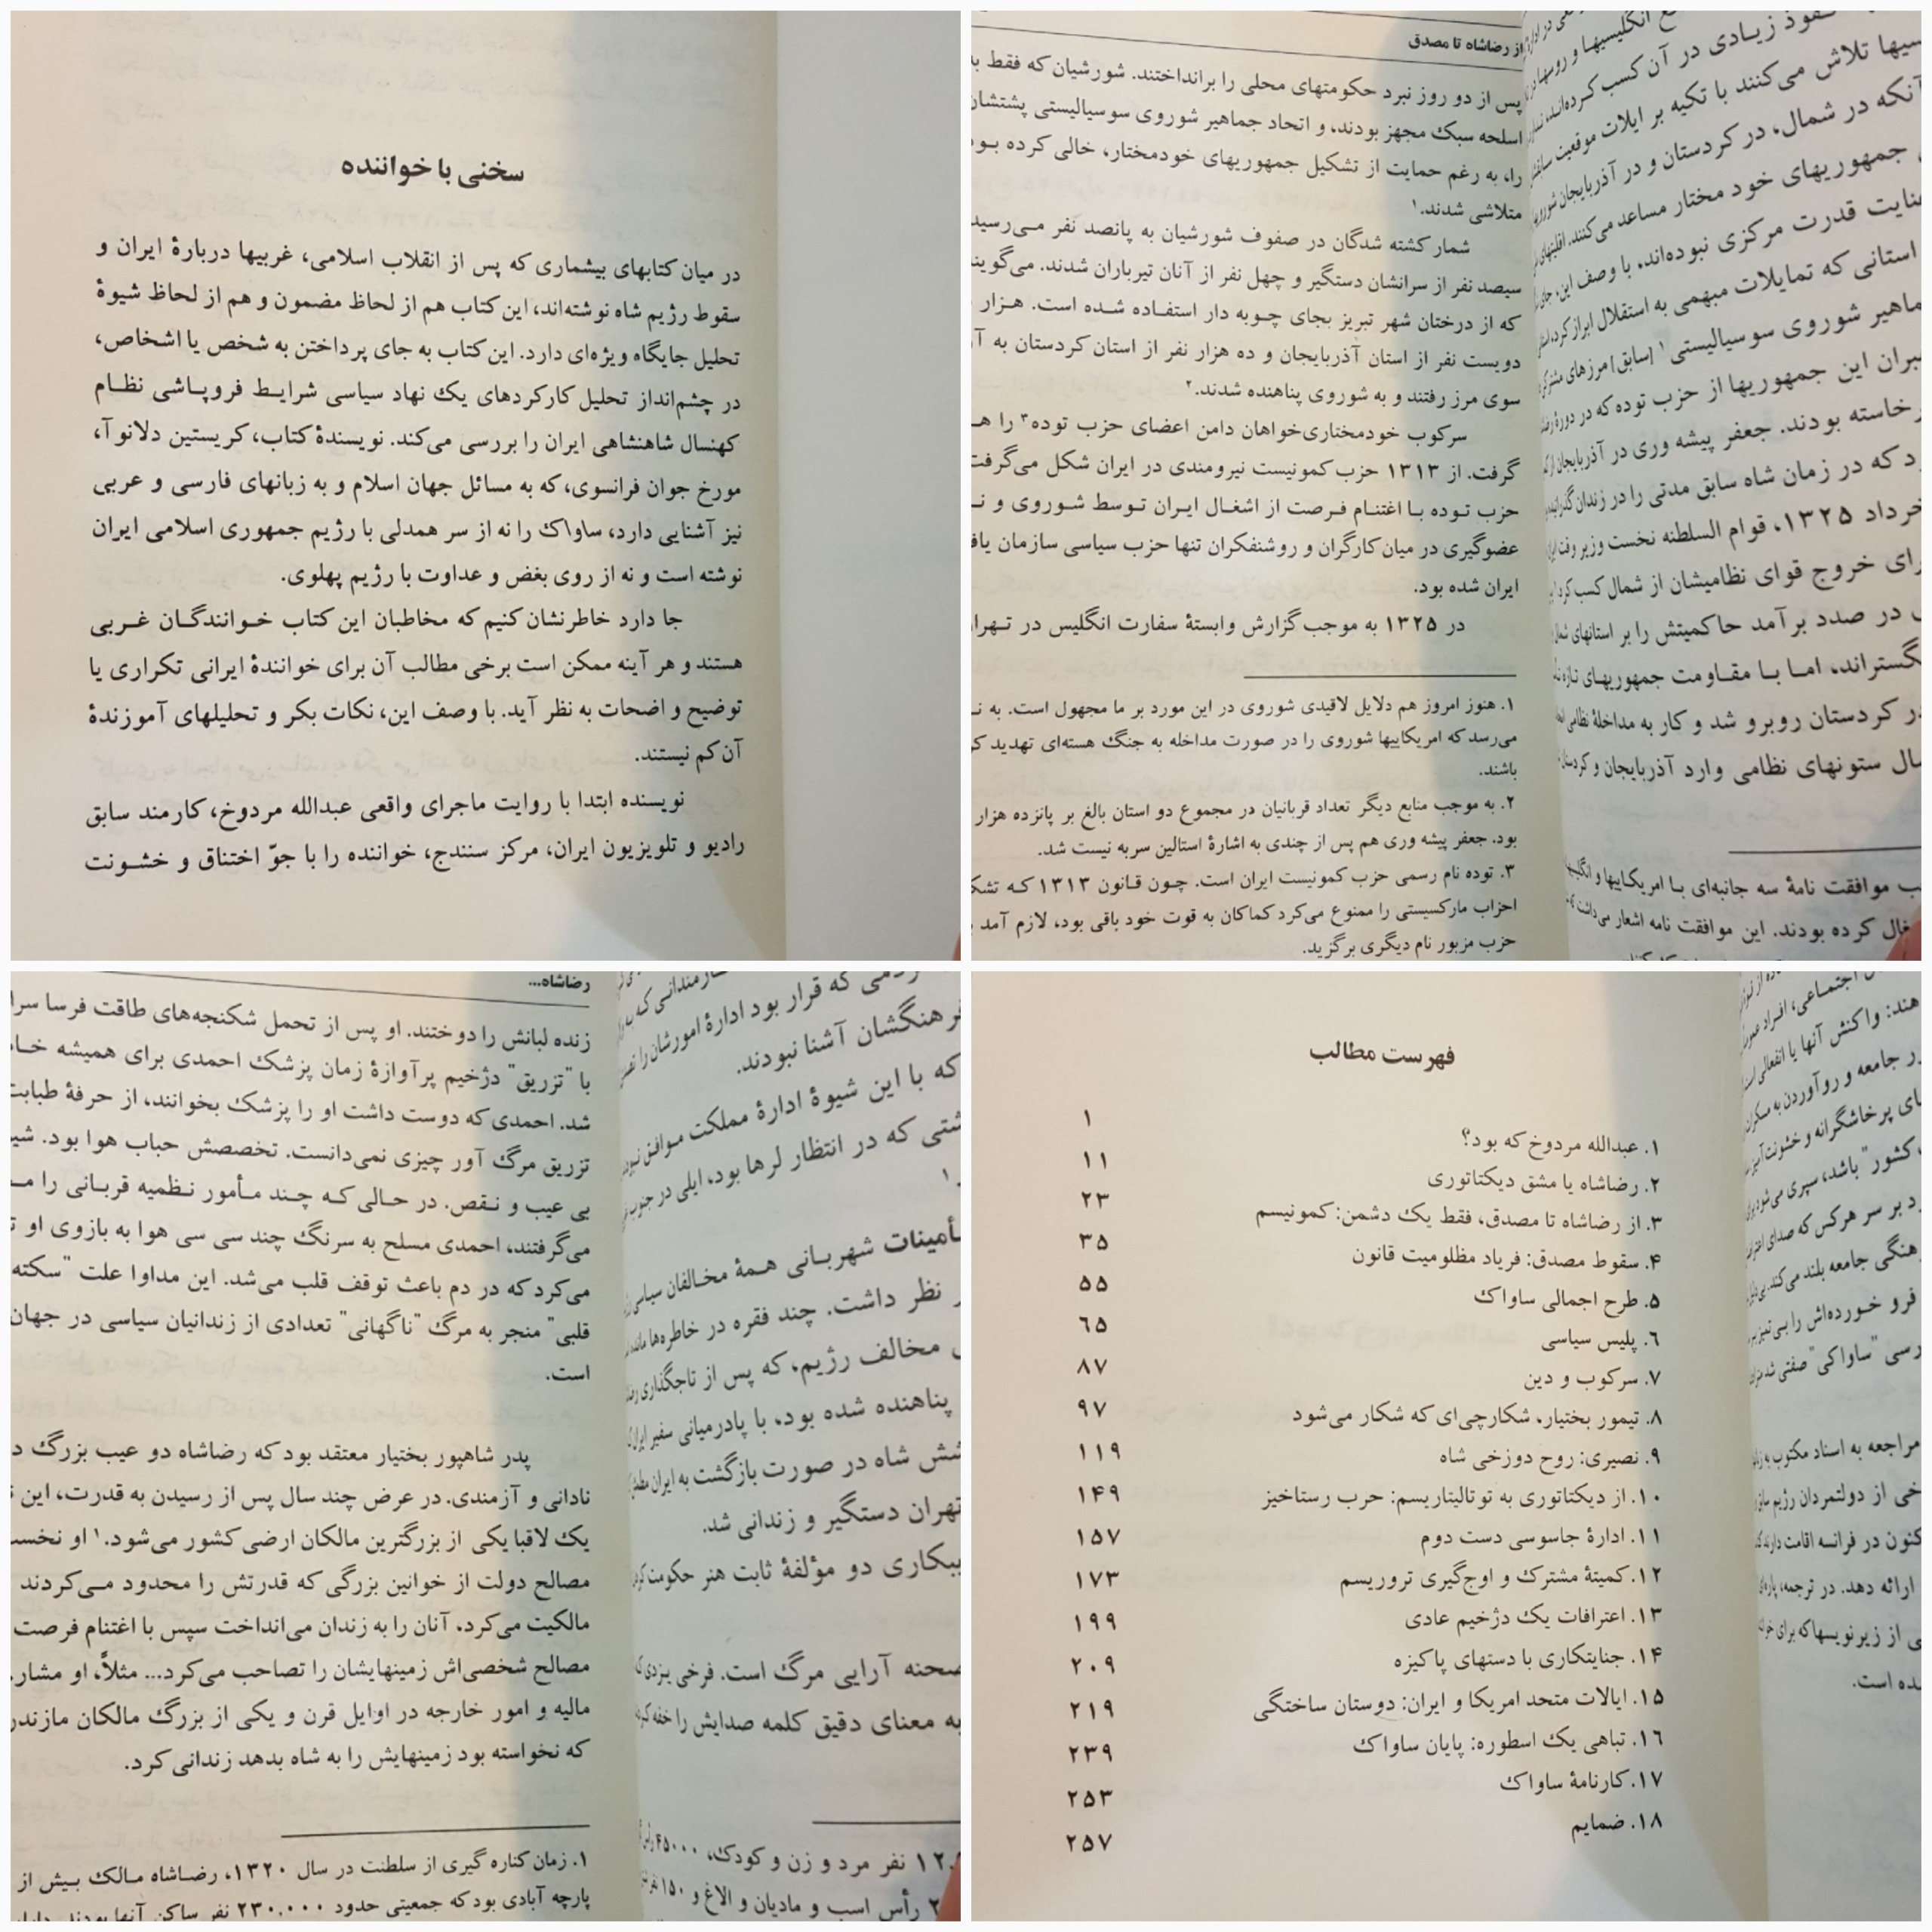 سخنی با خواننده
در میان کتابهای بیشماری که پس از انقلاب اسلامی، غربیها دربارهٔ ایران و
سقوط رژیم شاه نوشته‌اند، این کتاب هم از لحاظ مضمون و هم از لحاظ شیوهٔ
تحلیل جایگاه ویژه‌ای دارد. این کتاب به جای پرداختن به شخص یا اشخاص،
در چشم‌انداز تحلیل کارکردهای یک نهاد سیاسی شرایط فروپاشی نظام
کهنسال شاهنشاهی ایران را بررسی می‌کند. نویسندهٔ کتاب، کریستین دلانوآ،
مورخ جوان فرانسوی، که به مسائل جهان اسلام و به زبانهای فارسی و عربی
نیز آشنایی دارد، ساواک را نه از سر همدلی با رژیم جمهوری اسلامی ایران
نوشته است و نه از روی بغض و عداوت با رژیم پهلوی.
جا دارد خاطرنشان کنیم که مخاطبان این کتاب خوانندگان غربی
هستند و هر آینه ممکن است برخی مطالب آن برای خوانندهٔ ایرانی تکراری یا
توضیح واضحات به نظر آید. با وصف این، نکات بکر و تحلیلهای آموزندهٔ
آن کم نیستند.
نویسنده ابتدا با روایت ماجرای واقعی عبدالله مردوخ، کارمند سابق
رادیو و تلویزیون ایران، مرکز سنندج، خواننده را با جوّ اختناق و خشونت
از رضاشاه تا مصدق
پس از دو روز نبرد حکومتهای محلی را برانداختند. شورشیان که فقط
اسلحه سبک مجهز بودند، و اتحاد جماهیر شوروی سوسیالیستی پشتشان
را، به رغم حمایت از تشکیل جمهوریهای خودمختار، خالی کرده
متلاشی شدند.۱
شمار کشته شدگان در صفوف شورشیان به پانصد نفر می‌رسید
سیصد نفر از سرانشان دستگیر و چهل نفر از آنان تیرباران شدند.
که از درختان شهر تبریز بجای چوبه دار استفاده شده است. هزار
دویست نفر از استان آذربایجان و ده هزار نفر از استان کردستان به
سوی مرز رفتند و به شوروی پناهنده شدند.۲
سرکوب خودمختاری‌خواهان دامن اعضای حزب توده۳ را
گرفت. از ۱۳۱۳ حزب کمونیست نیرومندی در ایران شکل می‌گرفت
حزب توده با اغتنام فرصت از اشغال ایران توسط شوروی و
عضوگیری در میان کارگران و روشنفکران تنها حزب سیاسی سازمان
ایران شده بود.
در ۱۳۲۵ به موجب گزارش وابستهٔ سفارت انگلیس در
۱. هنوز امروز هم دلایل لاقیدی شوروی در این مورد بر ما مجهول است. به
می‌رسد که امریکاییها شوروی را در صورت مداخله به جنگ هسته‌ای تهدید
باشند.
۲. به موجب منابع دیگر تعداد قربانیان در مجموع دو استان بالغ بر پانزده هزار
بود. جعفر پیشه وری هم پس از چندی به اشارهٔ استالین سربه نیست شد.
۳. توده نام رسمی حزب کمونیست ایران است. چون قانون ۱۳۱۳ که
احزاب مارکسیستی را ممنوع می‌کرد کماکان به قوت خود باقی بود، لازم آمد
حزب مزبور نام دیگری برگزید.
نفوذ زیادی در آن کسب کرده‌اند،
تلاش می‌کنند با تکیه بر ایلات موقعیت
آنکه در شمال، در کردستان و در آذربایجان
جمهوریهای خود مختار مساعد می‌کنند.
عنایت قدرت مرکزی نبوده‌اند، با وصف این،
استانی که تمایلات مبهمی به استقلال ابراز
شوروی سوسیالیستی۱ [سابق] مرزهای
این جمهوریها از حزب توده که در
بودند. جعفر پیشه وری در آذربایجان
که در زمان شاه سابق مدتی را در زندان
خرداد ۱۳۲۵، قوام السلطنه نخست وزیر وقت
خروج قوای نظامیشان از شمال کسب
در صدد برآمد حاکمیتش را بر استانهای
بگستراند، اما با مقاومت جمهوریهای تازه
در کردستان روبرو شد و کار به مداخلهٔ نظامی
ستونهای نظامی وارد آذربایجان و
موافقت نامهٔ سه جانبه‌ای با امریکاییها و
کرده بودند. این موافقت نامه اشعار می‌داشت
رضاشاه...
زنده لبانش را دوختند. او پس از تحمل شکنجه‌های طاقت فرسا
با "تزریق" دژخیم پرآوازهٔ زمان پزشک احمدی برای همیشه
شد. احمدی که دوست داشت او را پزشک بخوانند، از حرفهٔ طبابت
تزریق مرگ آور چیزی نمی‌دانست. تخصصش حباب هوا بود.
بی عیب و نقص. در حالی که چند مأمور نظمیه قربانی را
می‌گرفتند، احمدی مسلح به سرنگ چند سی سی هوا به بازوی او
می‌کرد که در دم باعث توقف قلب می‌شد. این مداوا علت "سکته
قلبی" منجر به مرگ "ناگهانی" تعدادی از زندانیان سیاسی در جهان
است.
پدر شاهپور بختیار معتقد بود که رضاشاه دو عیب بزرگ
نادانی و آزمندی. در عرض چند سال پس از رسیدن به قدرت، این
یک لاقبا یکی از بزرگترین مالکان ارضی کشور می‌شود.۱ او
مصالح دولت از خوانین بزرگی که قدرتش را محدود می‌کردند
مالکیت می‌کرد، آنان را به زندان می‌انداخت سپس با اغتنام فرصت
مصالح شخصی‌اش زمینهایشان را تصاحب می‌کرد... مثلاً، او
مالیه و امور خارجه در اوایل قرن و یکی از بزرگ مالکان
که نخواسته بود زمینهایش را به شاه بدهد زندانی کرد.
۱. زمان کناره گیری از سلطنت در سال ۱۳۲۰، رضاشاه مالک بیش از
پارچه آبادی بود که جمعیتی حدود ۲۳۰،۰۰۰ نفر ساکن آنها بودند.
که قرار بود ادارهٔ امورشان را
فرهنگشان آشنا نبودند.
که با این شیوهٔ ادارهٔ مملکت موافق
که در انتظار لرها بود، ایلی در جنوب
تأمینات شهربانی همهٔ مخالفان سیاسی
نظر داشت. چند فقره در خاطره‌ها
مخالف رژیم، که پس از تاجگذاری
پناهنده شده بود، با پادرمیانی سفیر
شاه در صورت بازگشت به ایران
تهران دستگیر و زندانی شد.
دو مؤلفهٔ ثابت هنر حکومت
صحنه آرایی مرگ است. فرخی یزدی
به معنای دقیق کلمه صدایش را خفه
نفر مرد و زن و کودک، ۴۵۰۰۰
رأس اسب و مادیان و الاغ و ۱۵۰
فهرست مطالب
۱. عبدالله مردوخ که بود؟ ۱
۲. رضاشاه یا مشق دیکتاتوری ۱۱
۳. از رضاشاه تا مصدق، فقط یک دشمن: کمونیسم ۲۳
۴. سقوط مصدق: فریاد مظلومیت قانون ۳۵
۵. طرح اجمالی ساواک ۵۵
۶. پلیس سیاسی ۶۵
۷. سرکوب و دین ۸۷
۸. تیمور بختیار، شکارچی‌ای که شکار می‌شود ۹۷
۹. نصیری: روح دوزخی شاه ۱۱۹
۱۰. از دیکتاتوری به توتالیتاریسم: حرب رستاخیز ۱۴۹
۱۱. ادارهٔ جاسوسی دست دوم ۱۵۷
۱۲. کمیتهٔ مشترک و اوج‌گیری تروریسم ۱۷۳
۱۳. اعترافات یک دژخیم عادی ۱۹۹
۱۴. جنایتکاری با دستهای پاکیزه ۲۰۹
۱۵. ایالات متحد امریکا و ایران: دوستان ساختگی ۲۱۹
۱۶. تباهی یک اسطوره: پایان ساواک ۲۳۹
۱۷. کارنامهٔ ساواک ۲۵۳
۱۸. ضمایم ۲۵۷
اجتماعی، افراد
واکنش آنها یا انفعالی است
جامعه و روآوردن به
پرخاشگرانه و خشونت
کشور" باشد، سپری می‌شود
بر سر هرکس که صدای
جامعه بلند می‌کند.
فرو خورده‌اش را
"ساواکی" صفتی شد
مراجعه به اسناد مکتوب
از دولتمردان رژیم
در فرانسه اقامت دارند
ارائه دهد. در ترجمه،
از زیرنویسها که برای
است.